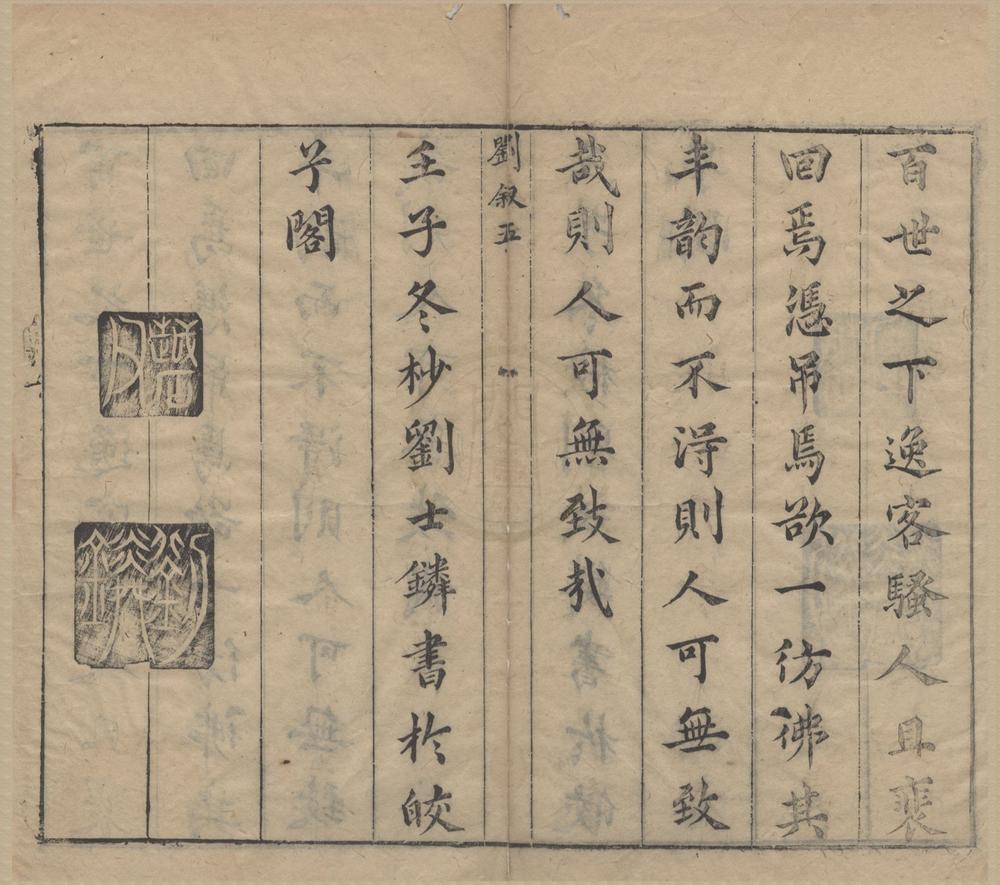 百世之下逸客騷人且裴
回焉憑吊焉欲一彷彿其
丰韵而不淂則人可無致
哉則人可無致哉
劉叙五
壬子冬杪劉士鏻書於皎
兮閣